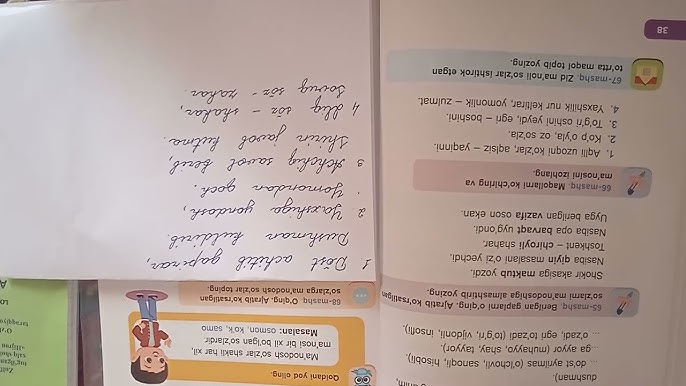 1. Do'st achitib gapirar,
Dushman kuldirib.
2. Yaxshiga yondash,
Yomondan qoch.
3. Achchiq savol berib,
Shirin javob kutma.
4. Iliq söz - shakar,
Sovuq söz - zahar.
dushman).
... do'st ayrilmas (o'lchovli, sanoqli, hisobli),
...ga ayyor (muhayyo, shay, tayyor).
... o'zadi, egri to'zadi (to'g'ri, vijdonli, insofli).
65-mashq. Berilgan gaplarni o'qing. Ajratib ko'rsatilgan
so'zlarni ma'nodoshiga almashtirib yozing.
Shokir akasiga maktub yozdi.
Nasiba qiyin masalani o'zi yechdi.
Toshkent – chiroyli shahar.
Nasiba opa barvaqt uyg'ondi.
Uyga berilgan vazifa oson ekan.
66-mashq. Maqollarni ko'chiring va
ma'nosini izohlang.
1. Aqlli uzoqni ko'zlar, aqlsiz – yaqinni.
2. Ko'p o'yla, oz so'zla.
3. To'g'ri oshini yeydi, egri – boshini.
4. Yaxshilik nur keltirar, yomonlik – zulmat.
67-mashq. Zid ma'noli so'zlar ishtirok etgan
to'rtta maqol topib yozing.
38
Qoidani yod oling.
Ma'nodosh so'zlar shakli har xil,
ma'nosi bir xil bo'lgan so'zlardir.
Masalan: osmon, ko'k, samo
68-mashq. O'qing. Ajratib ko'rsatilgan
so'zlarga ma'nodosh so'zlar toping.